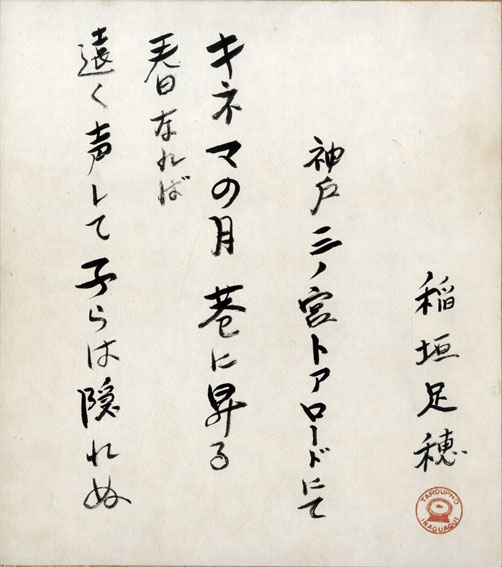 稲垣足穂
神戸三ノ宮トアロードにて
キネマの月巷に昇る
春なれば
遠く声して子らは隠れぬ
TARDUPHO
INAGUAQUI